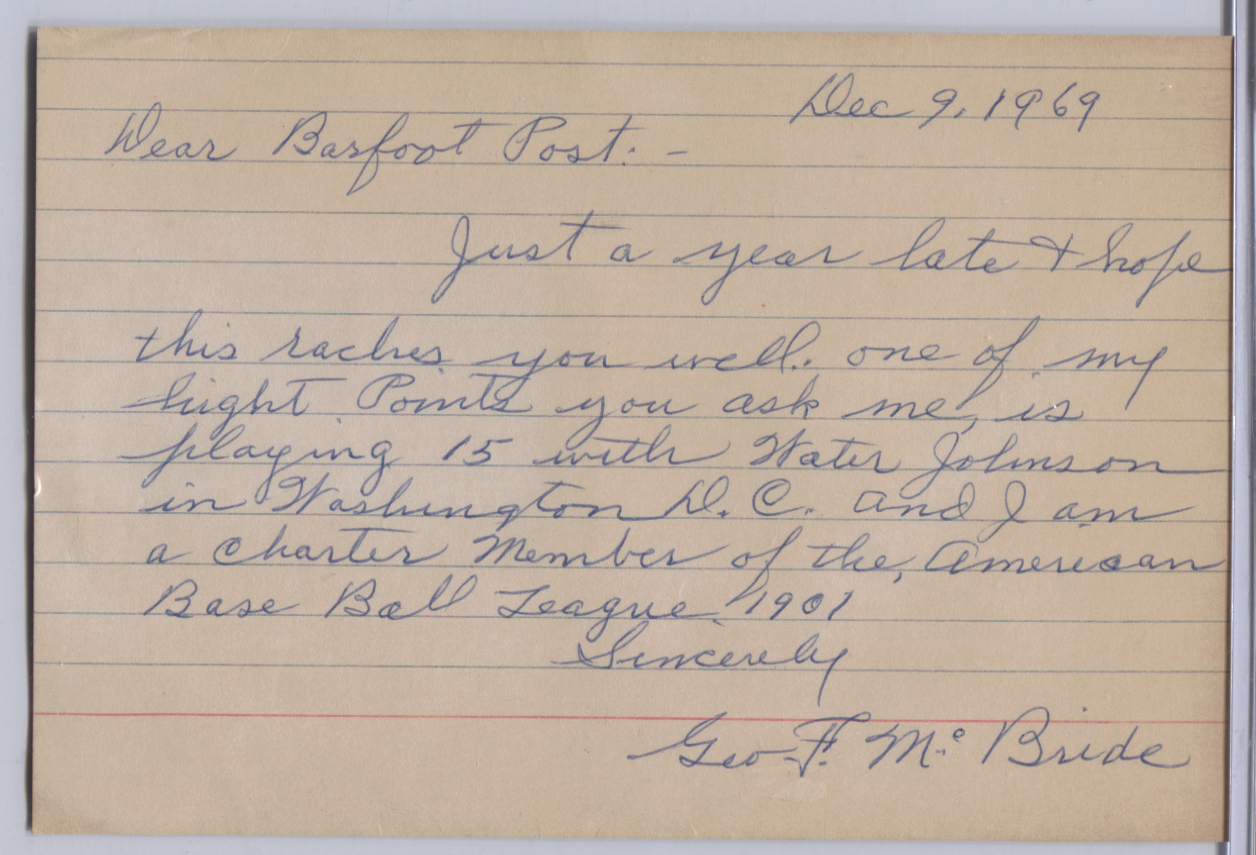 Dec 9, 1969
Dear Barfoot Post: -
Just a year late + hope
this raches you well. one of my
hight Points you ask me, is
playing 15 with Water Johnson
in Washington D.C. and I am
a charter Member of the, American
Base Ball League. 1901
Sincerely
Geo. F. Mc Bride